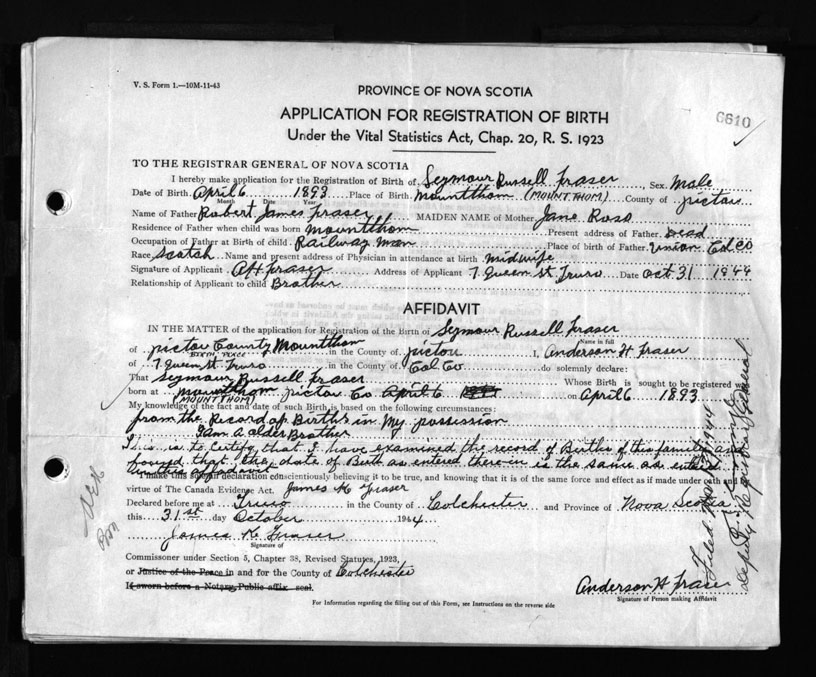 V. S. Form 1.—10M-11-43
PROVINCE OF NOVA SCOTIA
APPLICATION FOR REGISTRATION OF BIRTH
6610
Under the Vital Statistics Act, Chap. 20, R. S. 1923
TO THE REGISTRAR GENERAL OF NOVA SCOTIA
I hereby make application for the Registration of Birth of Seymour Russell Fraser Sex Male
Date of Birth April 6 1893 Place of Birth Mountthom (MOUNT THOM) County of pictou
Month Date Year
Name of Father Robert James Fraser MAIDEN NAME of Mother Jane Ross
Residence of Father when child was born Mountthom Present address of Father Dead
Occupation of Father at Birth of child Railway man Place of birth of Father Union Col Co
Race Scotch Name and present address of Physician in attendance at birth midwife
Signature of Applicant AH Fraser Address of Applicant 7 Queen St Truro Date Oct 31 1944
Relationship of Applicant to child Brother
AFFIDAVIT
IN THE MATTER of the application for Registration of the Birth of Seymour Russell Fraser
Name in full
of pictou County Mountthom in the County of pictou I, Anderson H Fraser
BIRTH PLACE
of 7 Queen St Truro in the County of Col Co do solemnly declare:
That Seymour Russell Fraser Whose Birth is sought to be registered was
born at Mountthom pictou Co April 6 on April 6 1893
(MOUNT THOM)
My knowledge of the fact and date of such Birth is based on the following circumstances:
from the Record of Births in My possession
I am a alder Brother
This is to certify that I have examined the record of Births of this family and
found that the date of Birth as entered therein is the same as entered
I make this solemn declaration conscientiously believing it to be true, and knowing that it is of the same force and effect as if made under oath and by
virtue of The Canada Evidence Act. James K Fraser
Declared before me at Truro in the County of Colchester and Province of Nova Scotia
this 31st day October 1944
James K Fraser
Signature of
Commissioner under Section 5, Chapter 38, Revised Statutes, 1923,
or Justice of the Peace in and for the County of Colchester
If sworn before a Notary Public affix seal.
Anderson H Fraser
Signature of Person making Affidavit
For Information regarding the filling out of this Form, see Instructions on the reverse side
Filed 1944
Deputy Registrar General